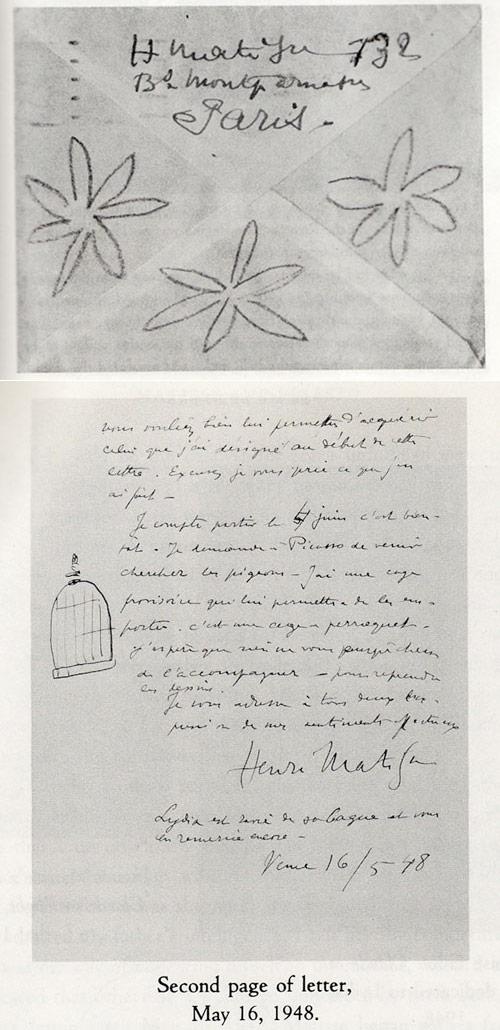 H Matisse 132
Bd Montparnasse
Paris.
vous vouliez bien lui permettre d'acquérir
celui que j'ai désigné au début de cette
lettre. Excusez je vous prie ce que j'en
ai fait –
Je compte partir le 4 juin c'est bien-
tôt. Je demande à Picasso de venir
chercher les pigeons – J'ai une cage
provisoire qui lui permettra de les em-
porter. c'est une cage à perroquet –
j'espère que rien ne vous empêchera
de l'accompagner – pour reprendre
les dessins.
Je vous adresse à tous deux l'ex-
pression de mes sentiments affectueux
Henri Matisse
Lydia est ravie de sa bague et vous
en remercie encore –
Vence 16/5 48
Second page of letter,
May 16, 1948.